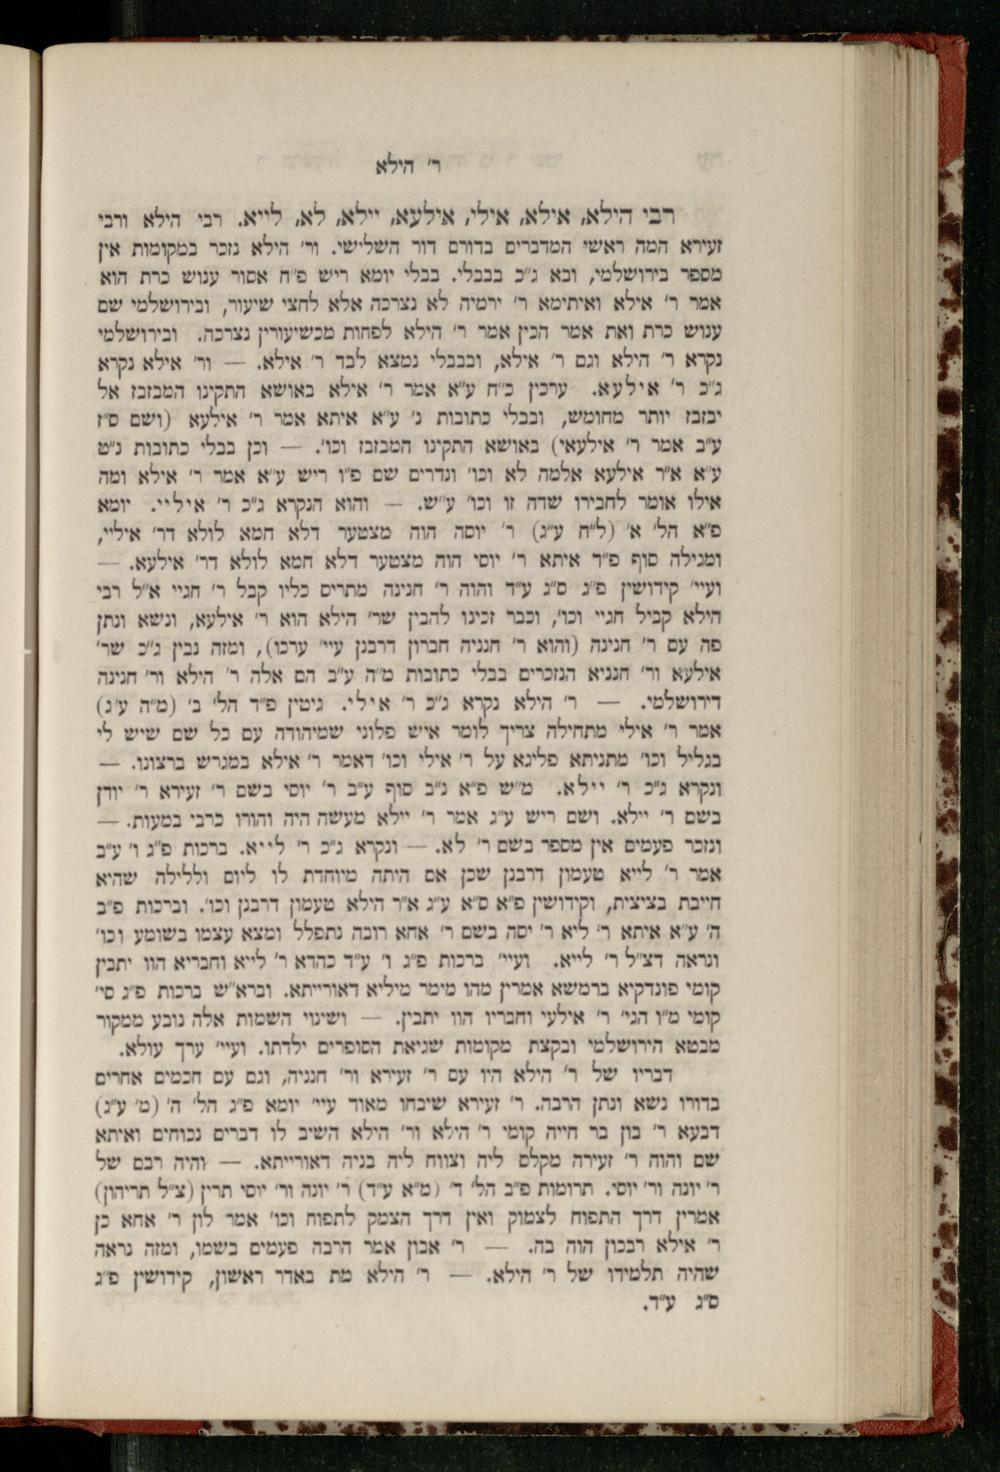 ר׳ הילא
רבי הילא, אילא, אילי, אילעא, יילא, לא, לייא. רבי הילא ורבי
זעירא המה ראשי המדברים בדורם דור השלישי. ור׳ הילא נזכר במקומות אין
מספר בירושלמי, ובא ג״כ בבבלי. בבלי יומא ריש פ״ח אסור ענוש כרת הוא
אמר ר׳ אילא ואיתימא ר׳ ירמיה לא נצרכה אלא לחצי שיעור, ובירושלמי שם
ענוש כרת ואת אמר הכין אמר ר׳ הילא לפחות מכשיעורין נצרכה. ובירושלמי
נקרא ר׳ הילא וגם ר׳ אילא, ובבבלי נמצא לבד ר׳ אילא. — ור׳ אילא נקרא
ג״כ ר׳ אילעא. ערכין כ״ח ע״א אמר ר׳ אילא באושא התקינו המבזבז אל
יבזבז יותר מחומש, ובבלי כתובות נ׳ ע״א איתא אמר ר׳ אילעא (ושם ס״ז
ע״ב אמר ר׳ אילעאי) באושא התקינו המבזבז וכו׳. — וכן בבלי כתובות נ״ט
ע״א א״ר אילעא אלמה לא וכו׳ ונדרים שם פ״ו ריש ע״א אמר ר׳ אילא ומה
אילו אומר לחבירו שדה זו וכו׳ ע״ש. — והוא הנקרא ג״כ ר׳ איליי. יומא
פ״א הל׳ א׳ (ל״ח ע״ג) ר׳ יוסה הוה מצטער דלא חמא לולא דר׳ איליי,
ומגילה סוף פ״ד איתא ר׳ יוסי הוה מצטער דלא חמא לולא דר׳ אילעא. —
ועיי׳ קידושין פ״ג ס״ג ע״ד והוה ר׳ חנינה מתריס כליו קבל ר׳ חגיי א״ל רבי
הילא קביל חגיי וכו׳, וכבר זכינו להבין שר׳ הילא הוא ר׳ אילעא, ונשא ונתן
פה עם ר׳ חנינה (והוא ר׳ חנניה חברון דרבנן עיי׳ ערכו), ומזה נבין ג״כ שר׳
אילעא ור׳ חנניא הנזכרים בבלי כתובות מ״ה ע״ב הם אלה ר׳ הילא ור׳ חנינה
דירושלמי. — ר׳ הילא נקרא ג״כ ר׳ אילי. גיטין פ״ד הל׳ ב׳ (מ״ה ע״ג)
אמר ר׳ אילי מתחילה צריך לומר איש פלוני שמיהודה עם כל שם שיש לי
בגליל וכו׳ מתניתא פליגא על ר׳ אילי וכו׳ דאמר ר׳ אילא במגרש ברצונו. —
ונקרא ג״כ ר׳ יילא. מ״ש פ״א נ״ב סוף ע״ב ר׳ יוסי בשם ר׳ זעירא ר׳ יודן
בשם ר׳ יילא. ושם ריש ע״ג אמר ר׳ יילא מעשה היה והורו כרבי במעות. —
ונזכר פעמים אין מספר בשם ר׳ לא. — ונקרא ג״כ ר׳ לייא. ברכות פ״ג ו׳ ע״ב
אמר ר׳ לייא טעמון דרבנן שכן אם היתה מיוחדת לו ליום וללילה שהיא
חייבת בציצית, וקידושין פ״א ס״א ע״ג א״ר הילא טעמון דרבנן וכו׳. וברכות פ״ב
ה׳ ע״א איתא ר׳ ליא ר׳ יסה בשם ר׳ אחא רובה נתפלל ומצא עצמו בשומע וכו׳
ונראה דצ״ל ר׳ לייא. ועיי׳ ברכות פ״ג ו׳ ע״ד כהדא ר׳ לייא וחבריא הוו יתבין
קומי פונדקיא ברמשא אמרין מהו מימר מיליא דאורייתא. וברא״ש ברכות פ״ג סי׳
קומי מ״ו הגי׳ ר׳ אילעי וחבריו הוו יתבין. — ושינוי השמות אלה נובע ממקור
מבטא הירושלמי ובקצת מקומות שגיאת הסופרים ילדתו. ועיי׳ ערך עולא.
דבריו של ר׳ הילא היו עם ר׳ זעירא ור׳ חנניה, וגם עם חכמים אחרים
בדורו נשא ונתן הרבה. ר׳ זעירא שיבחו מאוד עיי׳ יומא פ״ג הל׳ ה׳ (מ׳ ע״ג)
דבעא ר׳ בון בר חייה קומי ר׳ הילא ור׳ הילא השיב לו דברים נכוחים ואיתא
שם והוה ר׳ זעירה מקלס ליה וצווח ליה בניה דאורייתא. — והיה רבם של
ר׳ יונה ור׳ יוסי. תרומות פ״ב הל׳ ד׳ (מ״א ע״ד) ר׳ יונה ור׳ יוסי תרין (צ״ל תריהון)
אמרין דרך התפוח לצמוק ואין דרך הצמק לתפוח וכו׳ אמר לון ר׳ אחא כן
ר׳ אילא רבכון הוה בה. — ר׳ אבון אמר הרבה פעמים בשמו, ומזה נראה
שהיה תלמידו של ר׳ הילא. — ר׳ הילא מת באדר ראשון, קידושין פ״ג
ס״ג ע״ד.